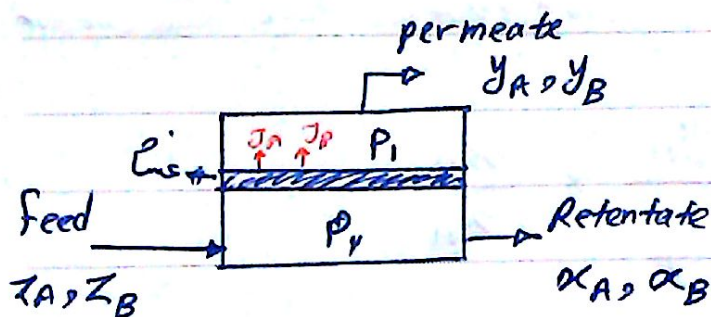 permeate
yA, yB
JA JB
P1
feed
Pγ
Retentate
zA, zB
xA, xB